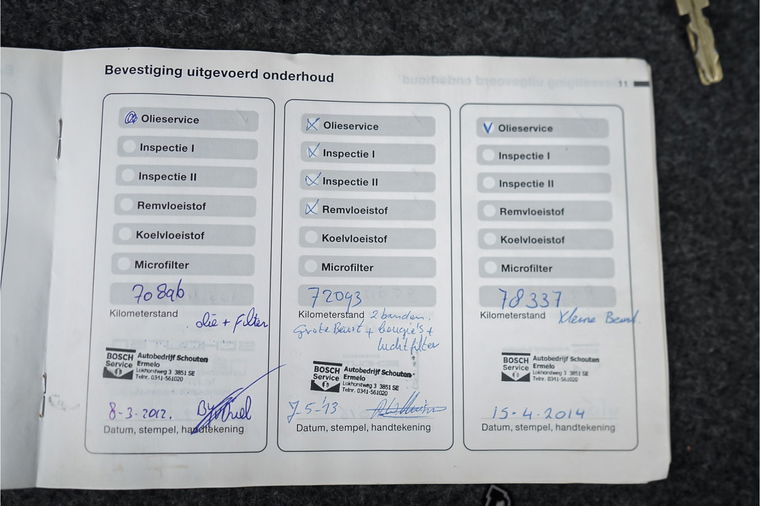 Bevestiging uitgevoerd onderhoud
11
Olieservice
Inspectie I
Inspectie II
Remvloeistof
Koelvloeistof
Microfilter
70896
Kilometerstand
olie + Filter
BOSCH
Service
Autobedrijf Schouten
Ermelo
Lokhorstweg 3 3851 SE
Telnr. 0341-561020
8-3-2012.
Datum, stempel, handtekening
Olieservice
Inspectie I
Inspectie II
Remvloeistof
Koelvloeistof
Microfilter
72093
Kilometerstand
2 banden.
Grote Beurt + bougie's +
luchtfilter
BOSCH
Service
Autobedrijf Schouten
Ermelo
Lokhorstweg 3 3851 SE
Telnr. 0341-561020
7-5-'13
Datum, stempel, handtekening
Olieservice
Inspectie I
Inspectie II
Remvloeistof
Koelvloeistof
Microfilter
78337
Kilometerstand
Kleine Beurt.
BOSCH
Service
Autobedrijf Schouten
Ermelo
Lokhorstweg 3 3851 SE
Telnr. 0341-561020
15-4-2014
Datum, stempel, handtekening